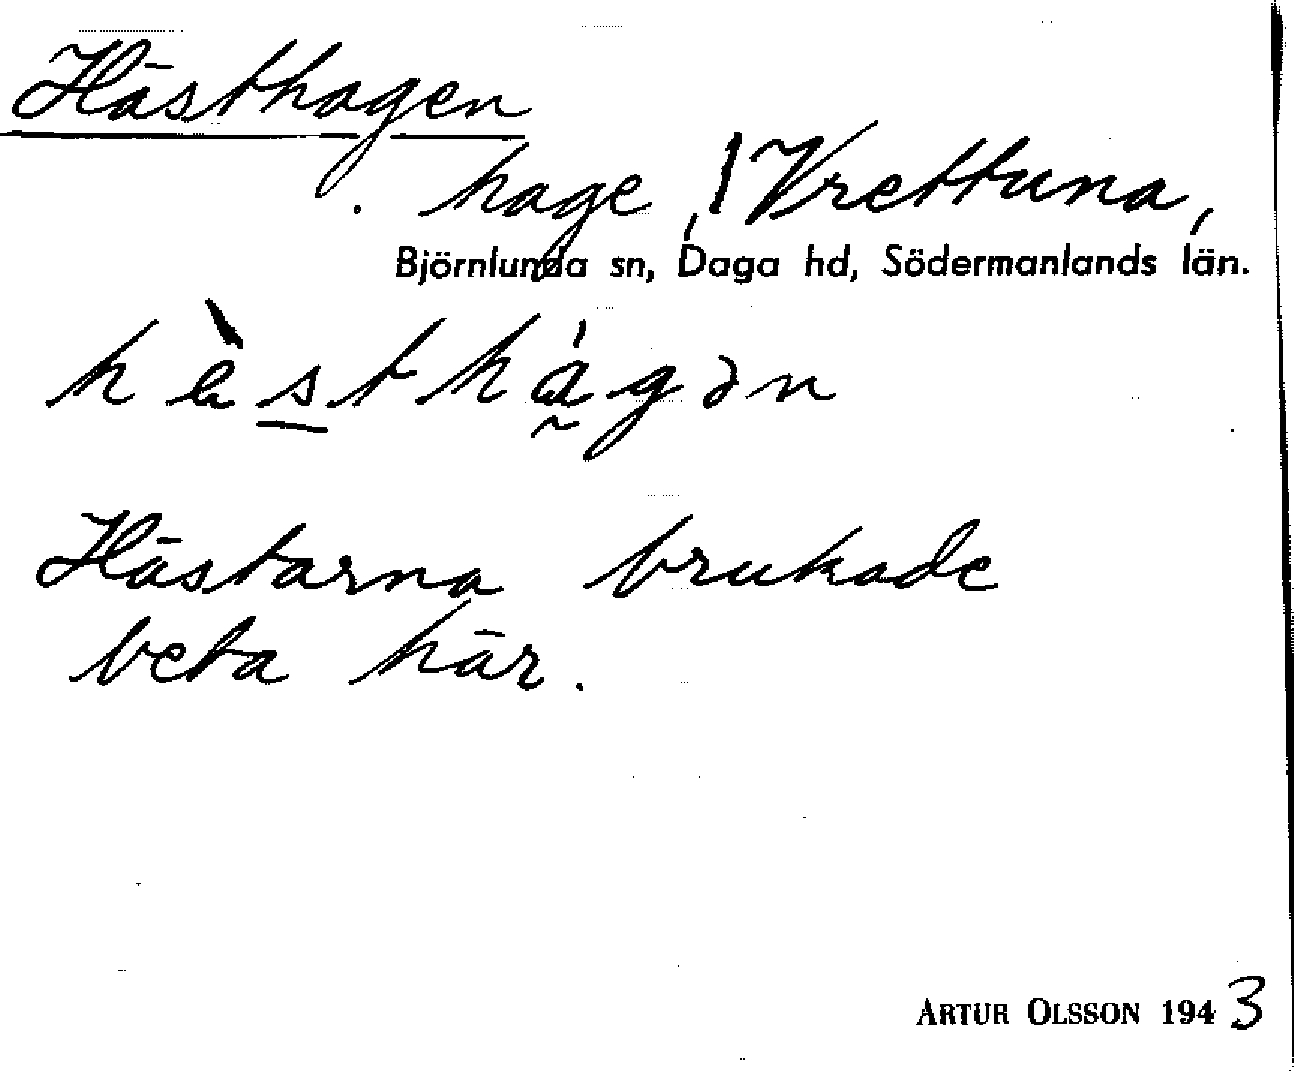 Hästhagen
hage, | Vrettuna,
Björnlunda sn, Daga hd, Södermanlands län.
hèsthágən
Hästarna brukade
beta här.
ARTUR OLSSON 1943